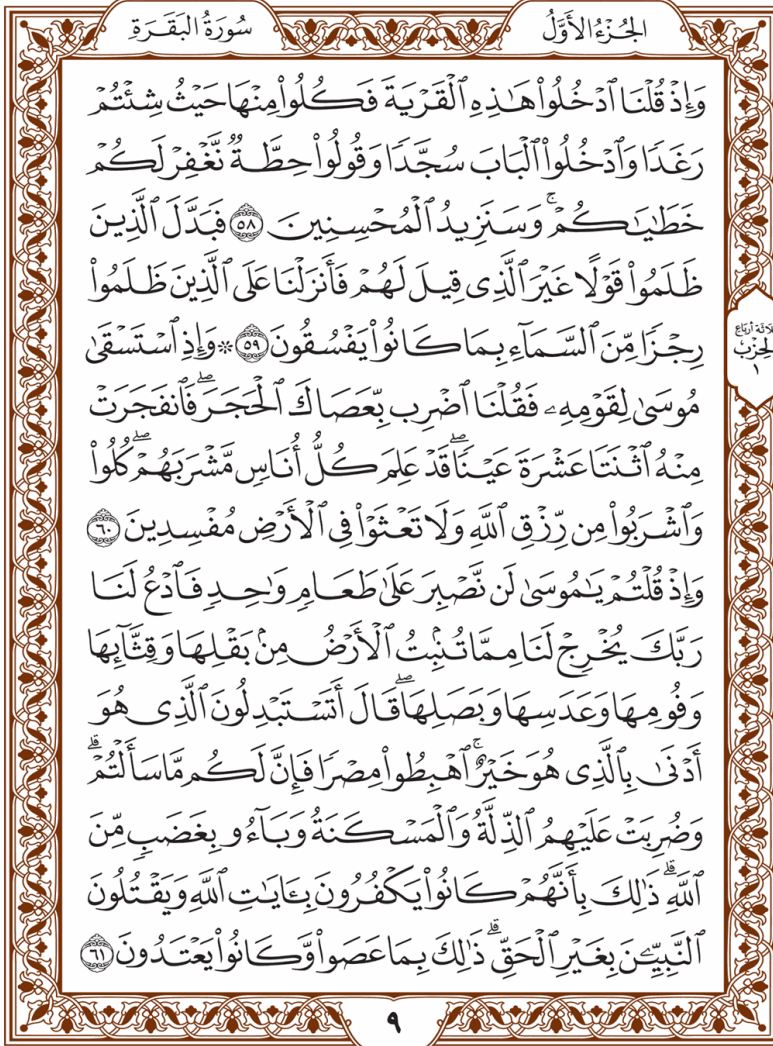 الجُزْءُ الأَوَّلُ
سُورَةُ البَقَرَةِ
وَإِذْ قُلْنَا ٱدْخُلُوا۟ هَـٰذِهِ ٱلْقَرْيَةَ فَكُلُوا۟ مِنْهَا حَيْثُ شِئْتُمْ
رَغَدًا وَٱدْخُلُوا۟ ٱلْبَابَ سُجَّدًا وَقُولُوا۟ حِطَّةٌ نَّغْفِرْ لَكُمْ
خَطَـٰيَـٰكُمْ ۚ وَسَنَزِيدُ ٱلْمُحْسِنِينَ ٥٨ فَبَدَّلَ ٱلَّذِينَ
ظَلَمُوا۟ قَوْلًا غَيْرَ ٱلَّذِى قِيلَ لَهُمْ فَأَنزَلْنَا عَلَى ٱلَّذِينَ ظَلَمُوا۟
رِجْزًا مِّنَ ٱلسَّمَآءِ بِمَا كَانُوا۟ يَفْسُقُونَ ٥٩ * وَإِذِ ٱسْتَسْقَىٰ
ثلاثة أرباع
الحِزْب
١
مُوسَىٰ لِقَوْمِهِۦ فَقُلْنَا ٱضْرِب بِّعَصَاكَ ٱلْحَجَرَ ۖ فَٱنفَجَرَتْ
مِنْهُ ٱثْنَتَا عَشْرَةَ عَيْنًا ۖ قَدْ عَلِمَ كُلُّ أُنَاسٍ مَّشْرَبَهُمْ ۖ كُلُوا۟
وَٱشْرَبُوا۟ مِن رِّزْقِ ٱللَّهِ وَلَا تَعْثَوْا۟ فِى ٱلْأَرْضِ مُفْسِدِينَ ٦٠
وَإِذْ قُلْتُمْ يَـٰمُوسَىٰ لَن نَّصْبِرَ عَلَىٰ طَعَامٍ وَٰحِدٍ فَٱدْعُ لَنَا
رَبَّكَ يُخْرِجْ لَنَا مِمَّا تُنۢبِتُ ٱلْأَرْضُ مِنۢ بَقْلِهَا وَقِثَّآئِهَا
وَفُومِهَا وَعَدَسِهَا وَبَصَلِهَا ۖ قَالَ أَتَسْتَبْدِلُونَ ٱلَّذِى هُوَ
أَدْنَىٰ بِٱلَّذِى هُوَ خَيْرٌ ۚ ٱهْبِطُوا۟ مِصْرًا فَإِنَّ لَكُم مَّا سَأَلْتُمْ ۗ
وَضُرِبَتْ عَلَيْهِمُ ٱلذِّلَّةُ وَٱلْمَسْكَنَةُ وَبَآءُو بِغَضَبٍ مِّنَ
ٱللَّهِ ۗ ذَٰلِكَ بِأَنَّهُمْ كَانُوا۟ يَكْفُرُونَ بِـَٔايَـٰتِ ٱللَّهِ وَيَقْتُلُونَ
ٱلنَّبِيِّـۧنَ بِغَيْرِ ٱلْحَقِّ ۗ ذَٰلِكَ بِمَا عَصَوا۟ وَّكَانُوا۟ يَعْتَدُونَ ٦١
٩